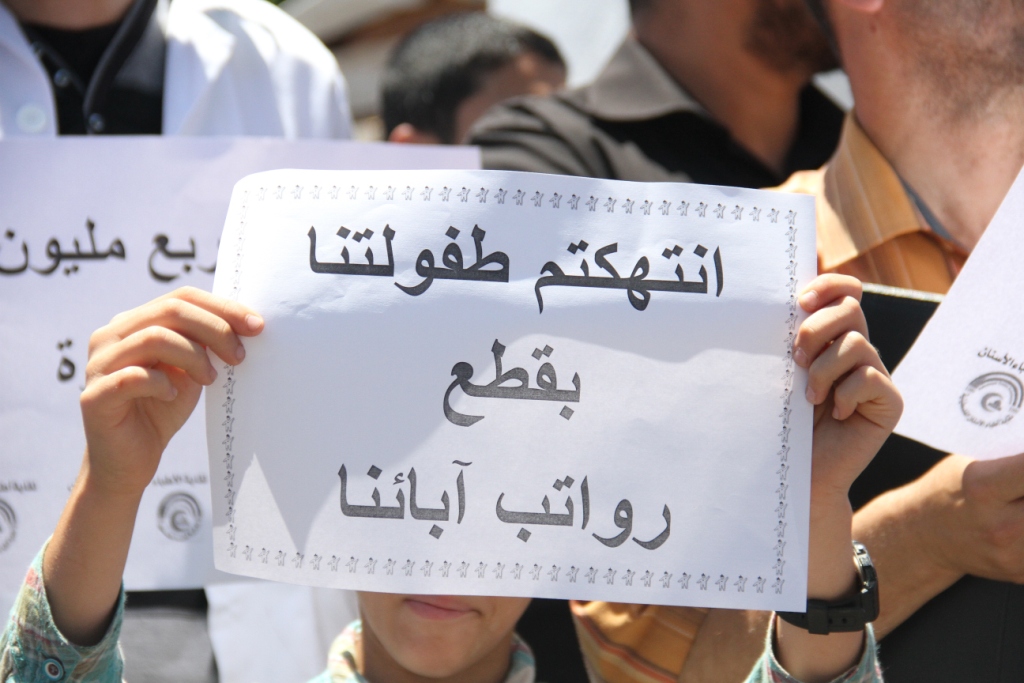 انتهكتم طفولتنا
بقطع
رواتب آبائنا
ربع مليون